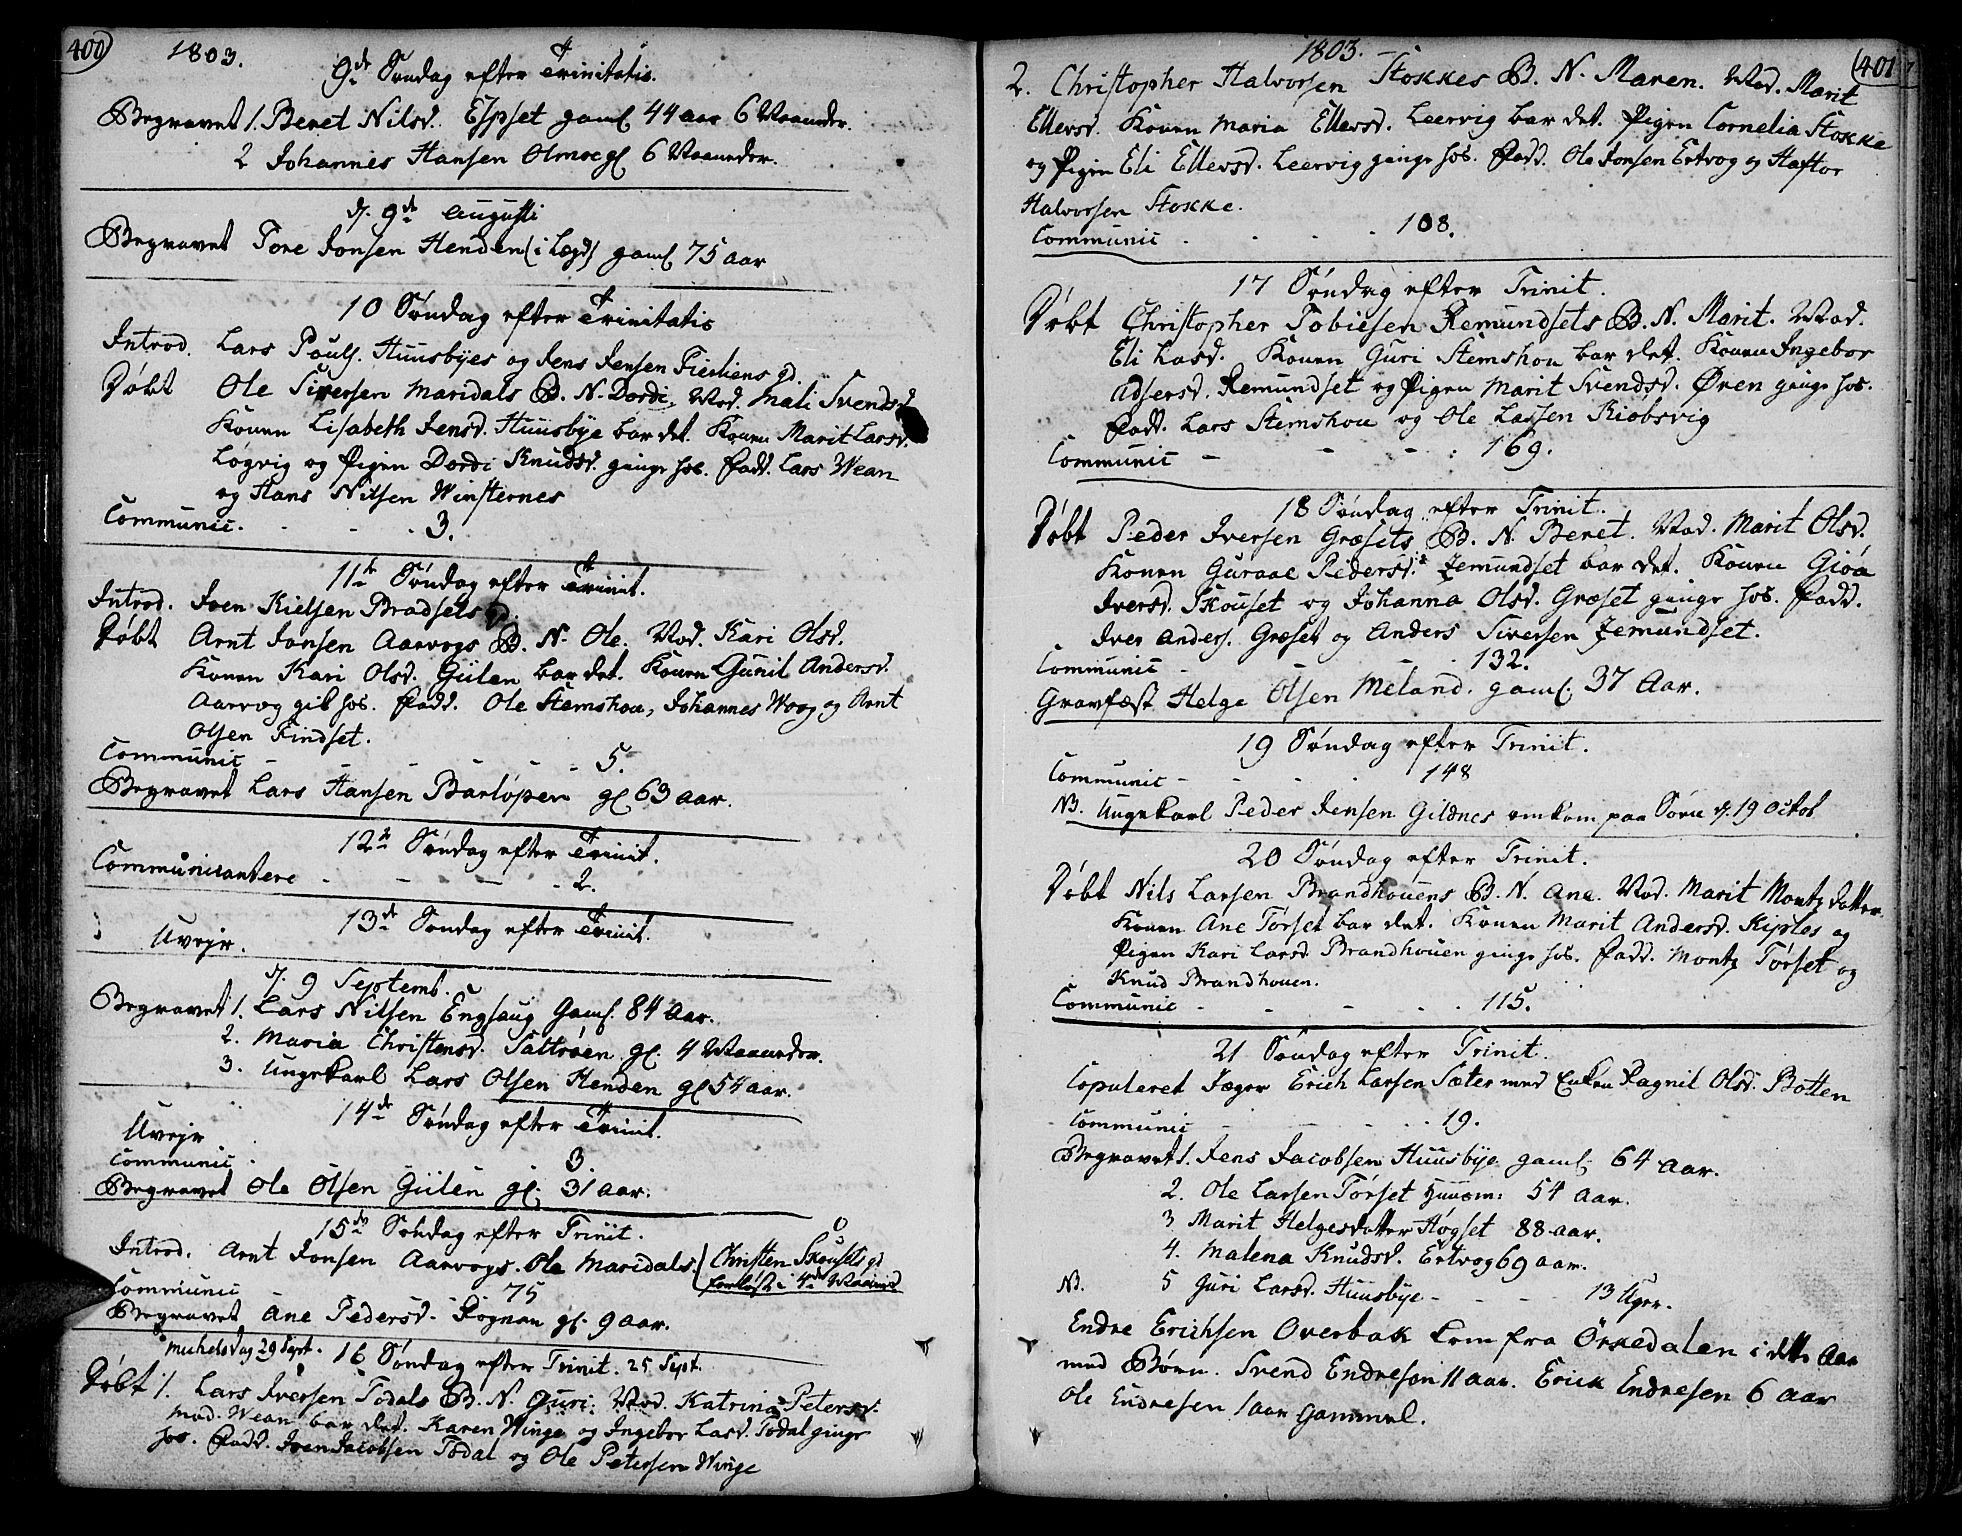 400
1803.
9de Søndag efter Trinitatis.
Begravet 1. Beret Nilsd. Espset gaml 44 aar 6 Maaneder.
2 Johannes Hansen Olmoe gl 6 Maaneder.
d. 9de Augusti
Begravet Tore Jonsen Henden (i Lægd) gaml 75 aar
10 Søndag efter Trinitatis
Introd. Lars Pouls. Huusbyes og Jens Jensen gd.
Døbt Ole Siversen Maridals B. N. Dordi. Mod. Mali Svendsd
Konen Lisabeth Jensd. Huusbye bar det. Konen Marit Larsd.
Løgvig og Pigen Dordi Knudsd. ginge hos. Fadd. Lars Wean
og Hans Nilsen Winsternes
Communic. - - - 3.
11te Søndag efter Trinit.
Introd. Iven Kielsen Bradsets gd.
Døbt Arnt Jonsen Aarvogs B. N. Ole. Mod. Kari Olsd.
Konen Kari Olsd. Giilen bar det. Konen Gunil Andersd.
Aarvog gik hos. Fadd. Ole Stemshou, Johannes Woog og Arnt
Olsen Findset.
Communic - - - - - 5.
Begravet Lars Hansen Barløpen gl 63 aar.
12te Søndag efter Trinit.
Communicantere - - - - 2.
13de Søndag efter Trinit.
Uvejr.
d. 9 Septemb.
Begravet 1. Lars Nilsen Engsaug Gaml. 84 Aar.
2. Maria Christensd. Saltrøen gl. 4 Maaneder.
3. Ungekarl Lars Olsen Henden gl 54 aar.
14de Søndag efter Trinit.
Uvejr
Communic - 3.
Begravet Ole Olsen Giilen gl. 31 aar.
15de Søndag efter Triit.
Introd. Arnt Jonsen Aarvogs. Ole Maridals. (Christen Skousets gd
forløst i 4de Maaned
Communic 75
Begravet Ane Pedersd. Rognan gl. 9 aar.
Michelsdag 29 Sept. 16 Søndag efter Trinit. 25 Sept.
Døbt 1. Lars Iversen Todals B. N. Guri. Mod. Katrina Petersd.
Mad. Wean bar det. Karen Winge og Ingebor Lasd. Todal ginge
hos. Fadd. Iven Jacobsen Todal og Ole Petersen Winge
1803.
401
2. Christopher Halvorsen Stokkes B. N. Maren. Mod. Marit
Ellevsd. Konen Maria Ellevsd. Leervig bar det. Pigen Cornelia Stokke
og Pigen Eli Ellevsd. Leervig ginge hos. Fadd. Ole Jonsen Ertvog og Haftor
Halvorsen Stokke.
Communic - - - - 108.
17 Søndag efter Trinit.
Døbt Christopher Tobiesen Remundsets B. N. Marit. Mod.
Eli Lasd. Konen Guri Stemshou bar det. Konen Ingebor
Adsersd. Remundset og Pigen Marit Svendsd. Øren ginge hos.
Fadd. Lars Stemshou og Ole Larsen Kiøbsvig
Communic - - - - 169.
18 Søndag efter Trinit.
Døbt Peder Iversen Græsets B. N. Beret. Mod. Marit Olsd.
Konen Guraae Pedersd. Jemundset bar det. Konen Gioa
Iversd. Skouset og Johanna Olsd. Græset ginge hos. Fadd.
Iver Anders. Græset og Anders Siversen Jemundset.
Communic - - - 132.
Gravfæst Helge Olsen Meland. gaml. 37 Aar.
19 Søndag efter Trinit.
Communic - - - - 148
NB. Ungekarl Peder Jensen Gildnes omkom paa Søen d. 19 Octob
20 Søndag efter Trinit.
Døbt Nils Larsen Brandhouens B. N. Ane. Mod. Marit Montz datter.
Konen Ane Torset bar det. Konen Marit Andersd. Kiples og
Pigen Kari Larsd. Brandhouen ginge hos. Fadd. Montz Torset og
Knud Brandhouen.
Communic - - - - - 115.
21 Søndag efter Trinit.
Copuleret Jæger Erich Larsen Sæter med Enken Ragnil Olsd. Botten
Communic - - - - 19.
Begravet 1. Jens Jacobsen Huusbye gaml. 64 aar.
2. Ole Larsen Torset Huusm: 54 aar.
3 Marit Helgesdatter Høgset 88 aar.
4. Malena Knudsd. Ertvog 69 aar.
NB. 5 Guri Larsd. Huusbye - - - 13 Uger.
Endre Erichsen Overbak kom fra Örkedalen i dette Aar
med Børn. Svend Endresøn 11 aar. Erick Endresen 6 aar
Ole Endresen 1 aar Gammel.